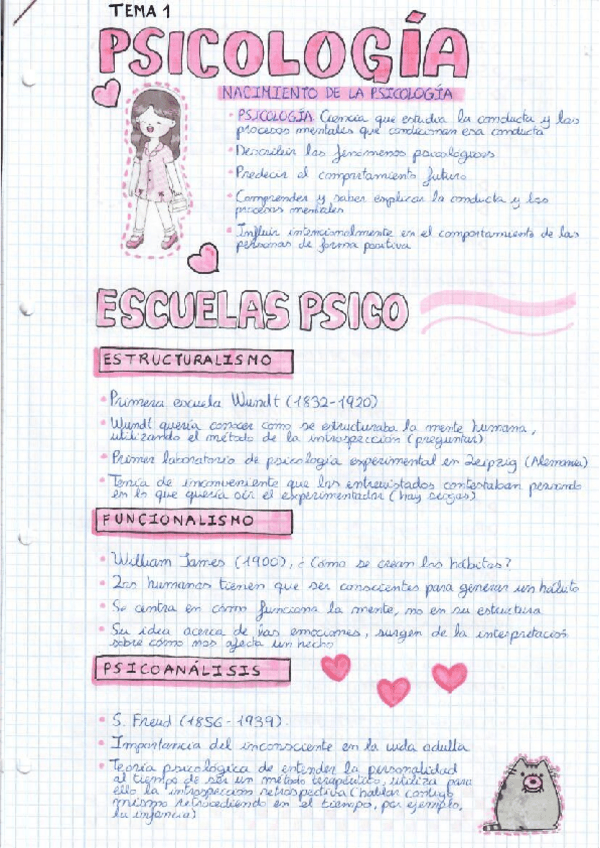 TEMA 1
PSICOLOGÍA
NACIMIENTO DE LA PSICOLOGÍA
• PSICOLOGÍA Ciencia que estudia la conducta y los
procesos mentales que condicionan esa conducta
• Describir los fenómenos psicológicos
• Predecir el comportamiento futuro
• Comprender y saber explicar la conducta y los
procesos mentales
• Influir intencionalmente en el comportamiento de las
personas de forma positiva
ESCUELAS PSICO
ESTRUCTURALISMO
• Primera escuela Wundt (1832-1920)
• Wundt quería conocer como se estructuraba la mente humana,
utilizando el método de la introspección (preguntar)
• Primer laboratorio de psicología experimental en Leipzig (Alemania)
• Tenía de inconveniente que los entrevistados contestaban pensando
en lo que quería oír el experimentador (hay sesgos)
FUNCIONALISMO
• William James (1900), ¿Cómo se crean los hábitos?
• Los humanos tienen que ser conscientes para generar un hábito
• Se centra en cómo funciona la mente, no en su estructura
• Su idea acerca de las emociones, surgen de la interpretación
sobre cómo nos afecta un hecho
PSICOANÁLISIS
• S. Freud (1856-1939).
• Importancia del inconsciente en la vida adulta
• Teoría psicológica de entender la personalidad
al tiempo de ser un método terapéutico, utiliza para
ello la introspección retrospectiva (hablar contigo
mismo retrocediendo en el tiempo, por ejemplo,
la infancia)